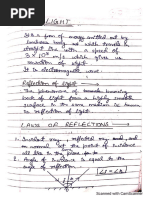 LIGHT
It is a form of energy emitted out by
luminous body and with travels in
straight line with a speed of
3 × 10⁸ m/s which gives us
sensation of light.
It is electromagnetic wave.
Reflection of Light →
The phenomenon of bouncing
back of light from a
surface, in the same medium is known
as reflection of light.
LAWS OF REFLECTIONS →
1. Incident ray, reflected ray and
normal at the point of incidence
all lie in same plane.
2. Angle of incidence is equal to the
angle of reflection.
∠i = ∠r
Scanned with CamScanner